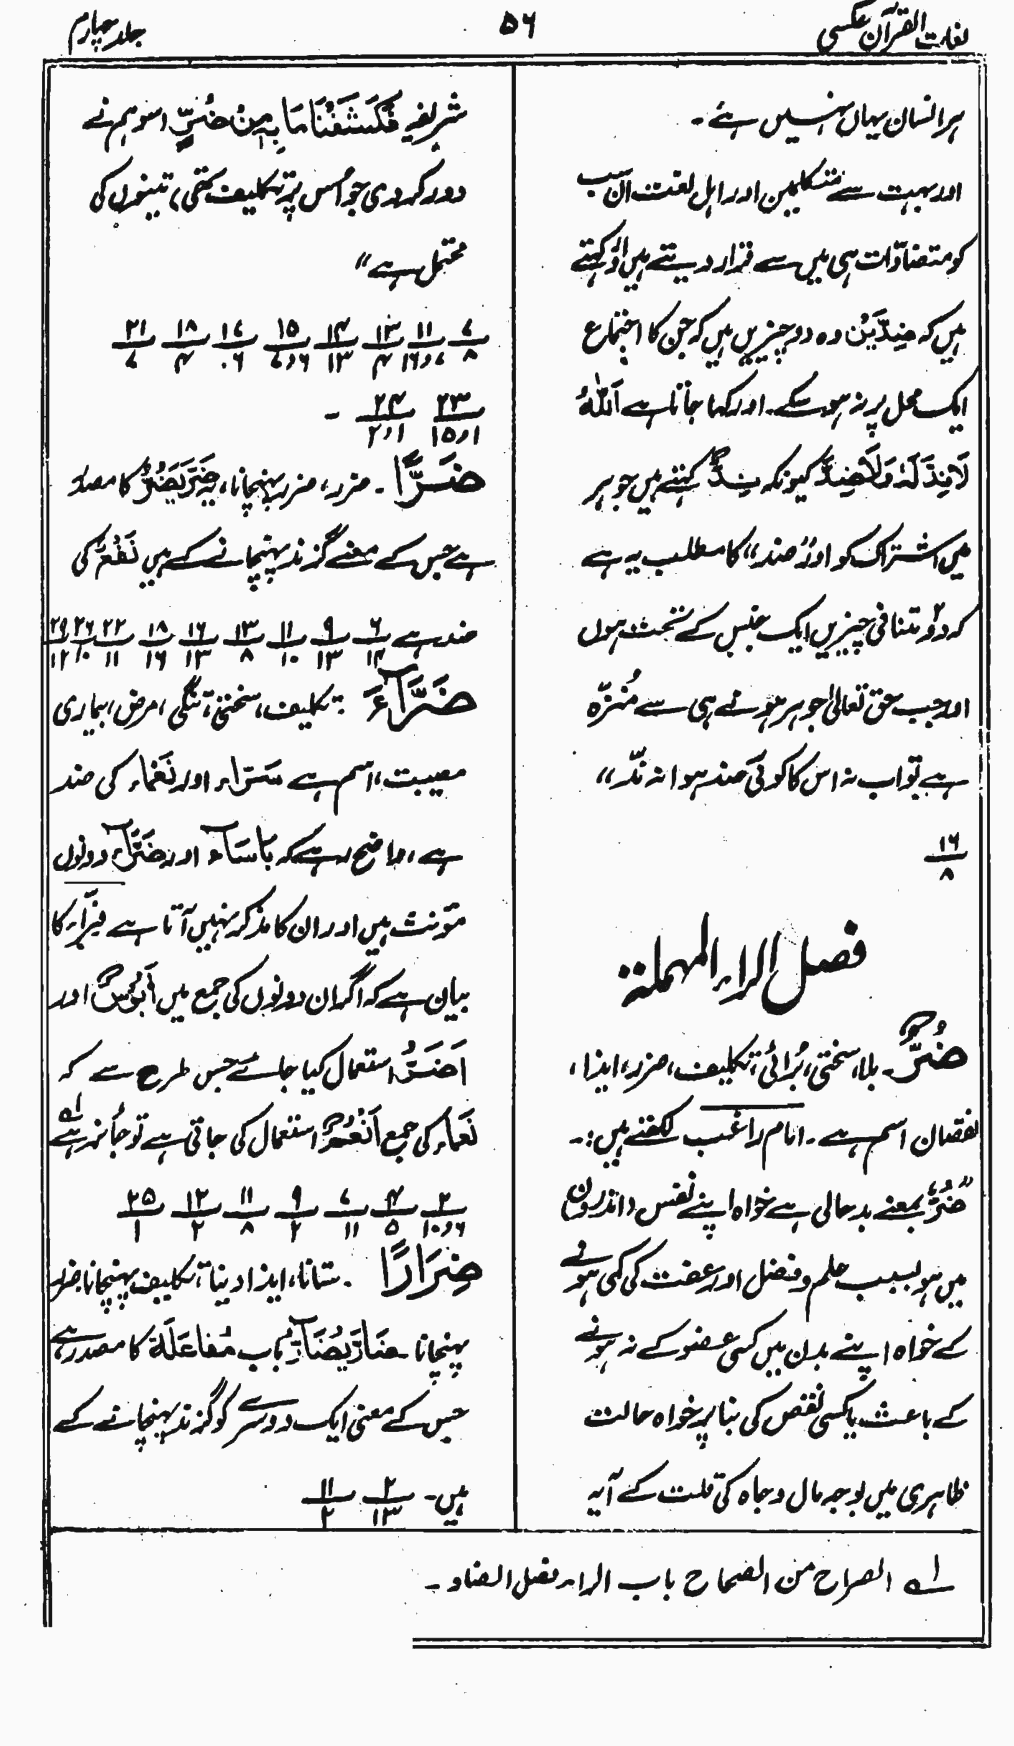 لغات القرآن عکسی
۵۶
جلد چہارم
ہر انسان یہاں نہیں ہے۔
اور بہت سے متکلمین اور اہل لغت ان سب
کو متضادات ہی میں سے قرار دیتے ہیں اور کہتے
ہیں کہ ضِدَّیْن وہ دو چیزیں ہیں کہ جن کا اجتماع
ایک محل پر نہ ہو سکے۔ اور کہا جاتا ہے اَللّٰہُ
لَا نِدَّ لَہٗ وَلَا ضِدَّ کیونکہ نِدٌّ کہتے ہیں جوہر
میں اشتراک کو اور "ضد" کا مطلب یہ ہے
کہ دو متنافی چیزیں ایک جنس کے تحت ہوں
اور جب حق تعالیٰ جوہر ہونے ہی سے مُنزّہ
ہے تو اب نہ اس کا کوئی ضد ہوا نہ نِدّ"
۱۶
۸
فصل الراء المہملۃ
ضُرٌّ۔ بلا، سختی، بُرائی، تکلیف، ضرر، ایذا،
نقصان اسم ہے۔ امام راغب لکھتے ہیں:۔
"ضُرٌّ بمعنے بدحالی ہے خواہ اپنے نفس (اندرون)
میں ہو بسبب علم و فضل اور عفت کی کمی ہونے
کے خواہ اپنے بدن میں کسی عضو کے نہ ہونے
کے باعث یا کسی نقص کی بنا پر خواہ حالت
ظاہری میں بوجہ مال و جاہ کی قلت کے آیہ
شریفہ فَکَشَفْنَا مَا بِہٖ مِنْ ضُرٍّ (سو ہم نے
دور کردی جو اُس پر تکلیف تھی) تینوں کی
محتمل ہے"
۷ ۱۱ ۱۳ ۱۴ ۱۵ ۱۷ ۱۸ ۲۱
۸ ۷و۱۶ ۴ ۱۳ ۶و۷ ۰۶ ۴ ۷
۲۳ ۲۴ ۔
۱و۱۵ ۱و۲
ضَرًّا۔ ضرر، ضرر پہنچانا، یہ ضَرَّ یَضُرُّ کا مصدر
ہے جس کے معنے گزند پہنچانے کے ہیں نَفْعٌ کی
ضد ہے ۶ ۹ ۱۱ ۱۳ ۱۶ ۱۸ ۲۲ ۲۶ ۲۹
۱۴ ۱۳ ۱۰ ۸ ۱۳ ۱۶ ۱۱ ۱۰ ۱۲
ضَرَّآءَ۔ تکلیف، سختی، تنگی، مرض، بیماری
مصیبت، اسم ہے سَرَّاء اور نَعْمَاء کی ضد
ہے، واضح رہے کہ بَاْسَآء اور ضَرَّآء دونوں
مؤنث ہیں اور ان کا مذکر نہیں آتا ہے فرّاء کا
بیان ہے کہ اگر ان دونوں کی جمع میں اَبْؤُسٌ اور
اَضَرُّ استعمال کیا جائے جس طرح سے کہ
نَعْمَاء کی جمع اَنْعُمٌ استعمال کی جاتی ہے تو جائز ہے لہ
۲ ۴ ۷ ۹ ۱۱ ۱۲ ۲۵
۶و۱۰ ۵ ۱۱ ۲ ۸ ۲ ۱
ضِرَارًا۔ ستانا، ایذا دینا، تکلیف پہنچانا، ضرر
پہنچانا۔ ضَارَّ یُضَارُّ باب مُفَاعَلَۃ کا مصدر ہے
جس کے معنی ایک دوسرے کو گزند پہنچانے کے
ہیں۔ ۲ ۱۱
۱۳ ۲
لہ الصراح من الصحاح باب الراء فصل الضاد۔